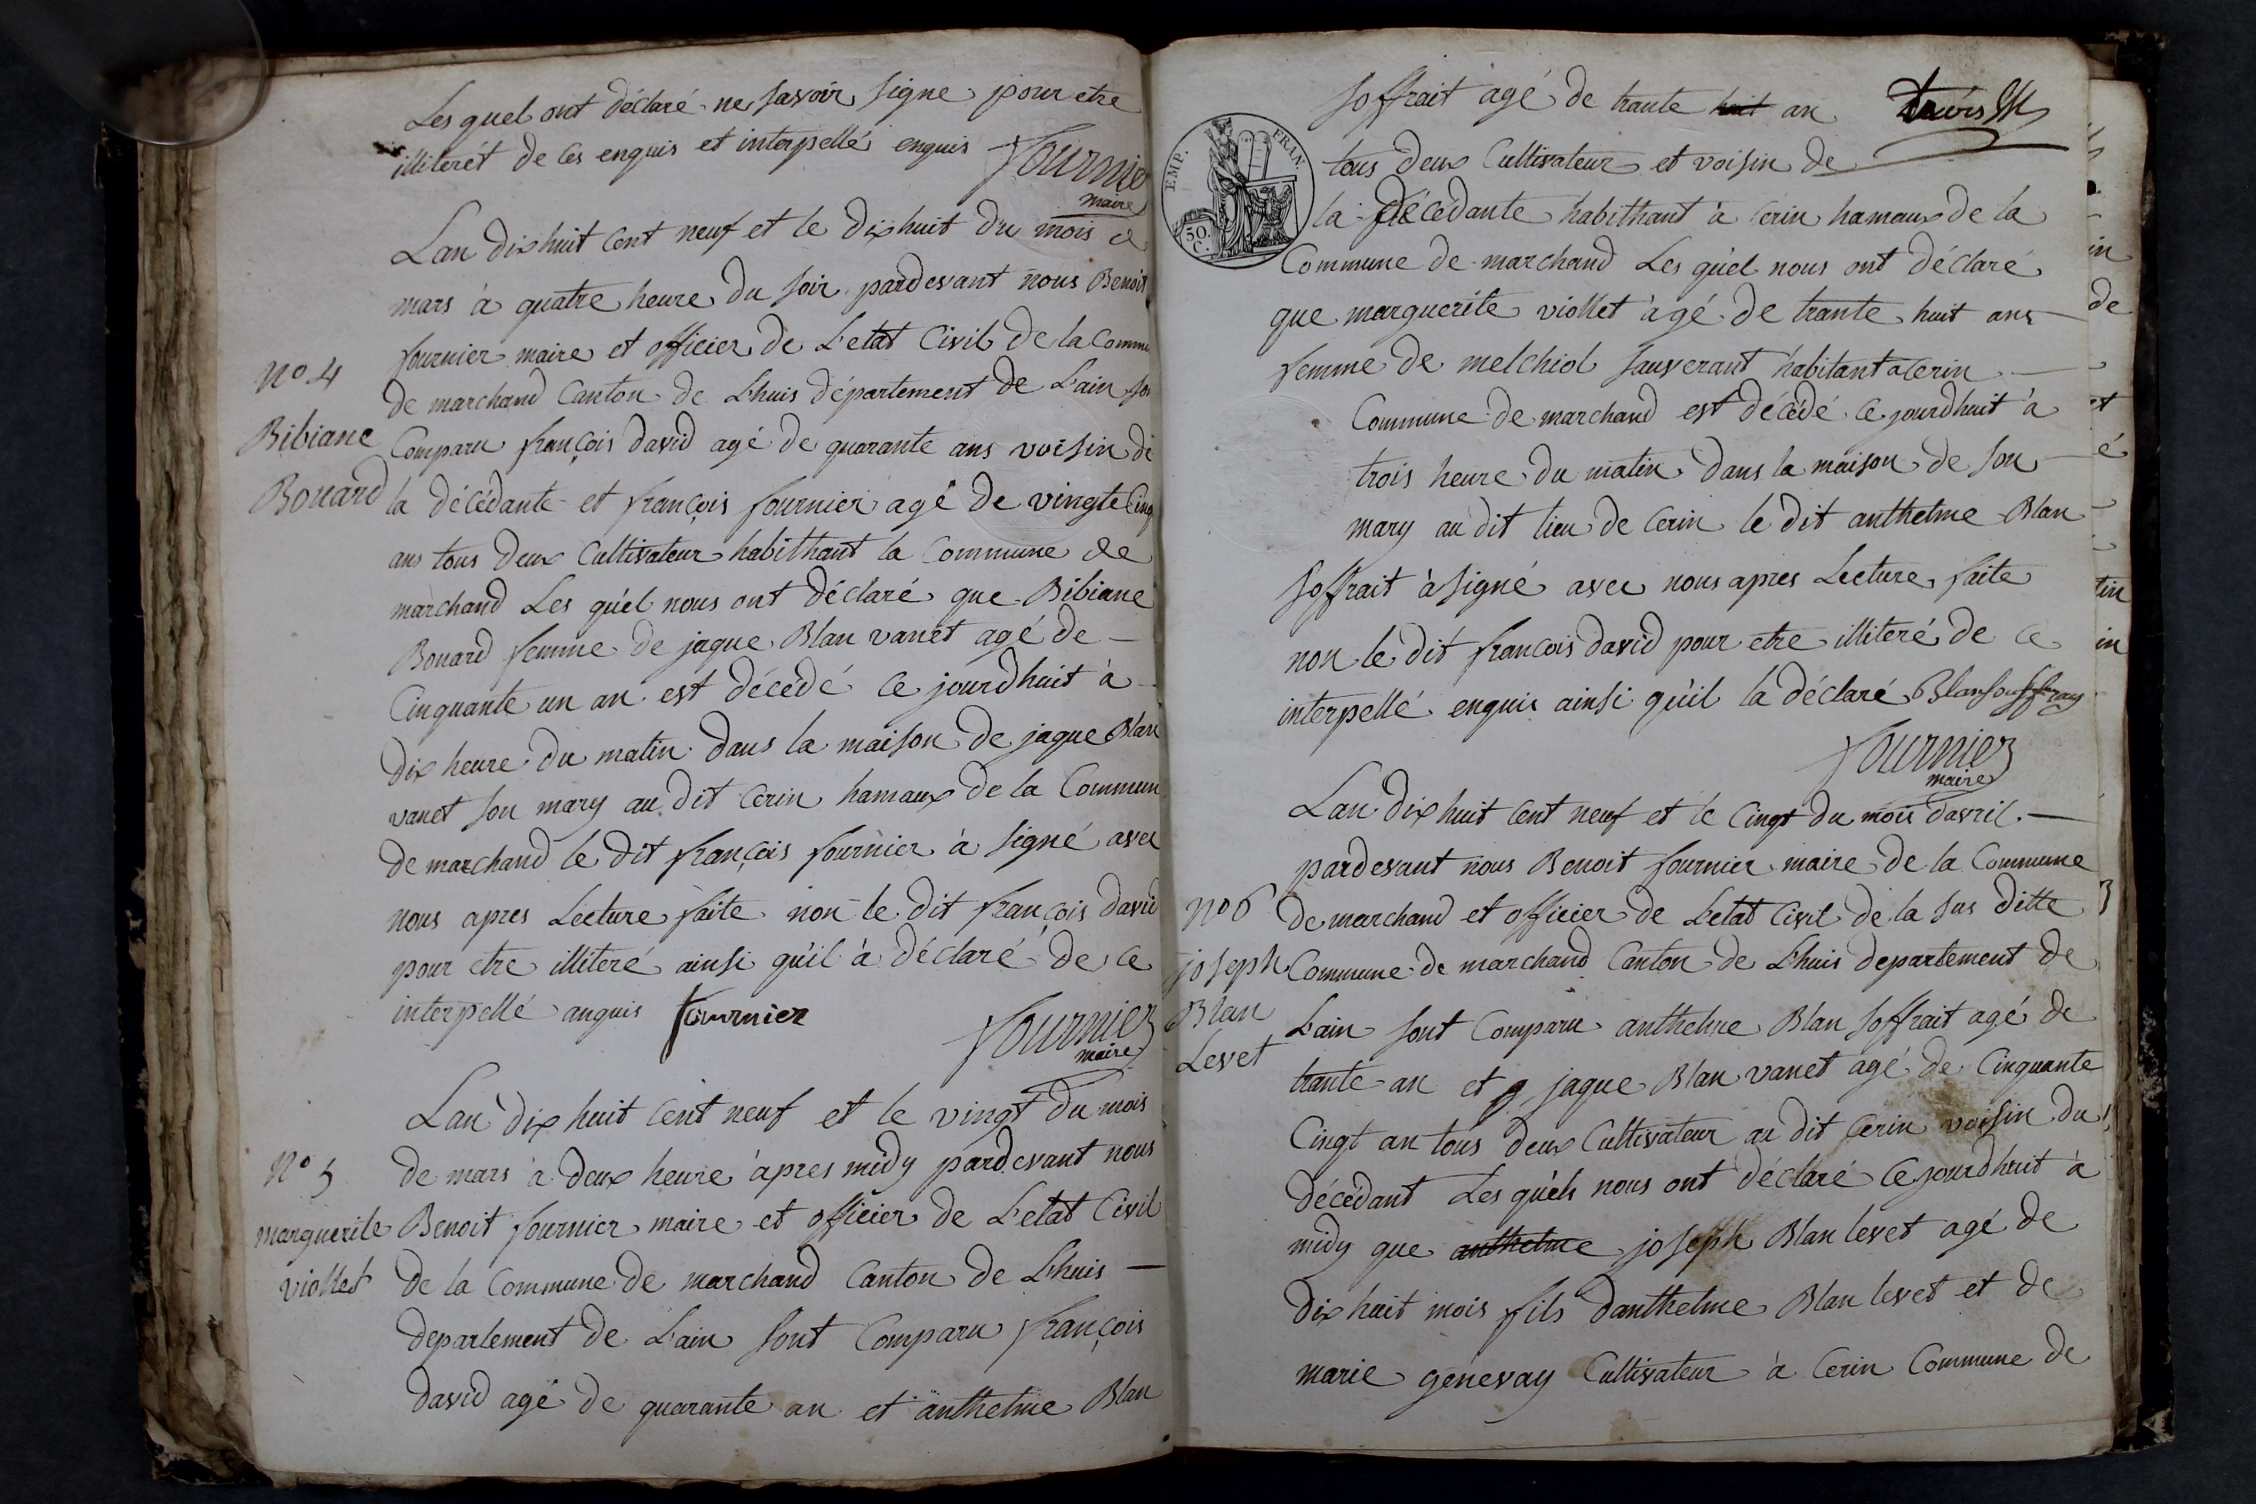 Les quel ont déclaré ne savoir signe pour etre
illiterét de ces enquis et interpellé enquis
fournier
maire
Lan dix huit Cent neuf et le dix huit du mois de
mars à quatre heure du soir pardevant nous Benoit
fournier maire et officier de L'etat Civil de la Commu
de marchand Canton de Lhuis département de Lain son
Comparu françois david agé de quarante ans voisin de
la décédante et françois fournier agé de vingte Cinq
ans tous deux Cultivateur habithant la Commune de
marchand Les quel nous ont déclaré que Bibiane
Bouard femme de jaque Blan vanet agé de
Cinquante un an est décedé ce jourdhuit à
dix heure du matin dans la maison de jaque Blan
vanet son mary au dit Cerin hamaux de la Commun
de marchand le dit françois fournier à signé avec
nous apres Lecture faite non le dit françois david
pour etre illiteré ainsi qu'il à déclaré de ce
interpellé anquis fournier
fournier
maire
N° 4
Bibiane
Bouard
Lan dix huit Cent neuf et le vingt du mois
de mars à deux heure àpres midy pardevant nous
Benoit fournier maire et officier de L'etat Civil
de la Commune de marchand Canton de Lhuis
departement de Lain sont Comparu françois
david agé de quarante an et anthelme Blan
N° 5
marguerite
viollet
soffrait agé de trante huit an
tous deux Cultivateur et voisin de
la décédante habithant à Cerin hamaux de la
Commune de marchand Les quel nous ont déclaré
que marguerite viollet àgé de trante huit ans
femme de melchiol sauverant habitant a Cerin
Commune de marchand est décédé ce jourdhuit à
trois heure du matin dans la maison de son
mary au dit lieu de Cerin le dit anthelme Blan
soffrait à signé avec nous apres Lecture faite
non le dit françois david pour etre illiteré de ce
interpellé enquis ainsi qu'il la déclaré Blansouffray
fournier
maire
EMP. FRAN
50.
C.
Lan dix huit Cent neuf et le Cingt du mois davril
pardevant nous Benoit fournier maire de la Commune
de marchand et officier de L'etat Civil de la sus ditte
Commune de marchand Canton de Lhuis departement de
Lain sont Comparu anthelme Blan soffrait agé de
trante an et jaque Blan vanet agé de Cinquante
Cingt an tous deux Cultivateur au dit Cerin voisin du
décédant Les quels nous ont déclaré ce jourdhuit à
midy que anthelme joseph Blan levet agé de
dix huit mois fils danthelme Blan levet et de
marie genevay Cultivateur à Cerin Commune de
N° 6
joseph
Blan
Levet